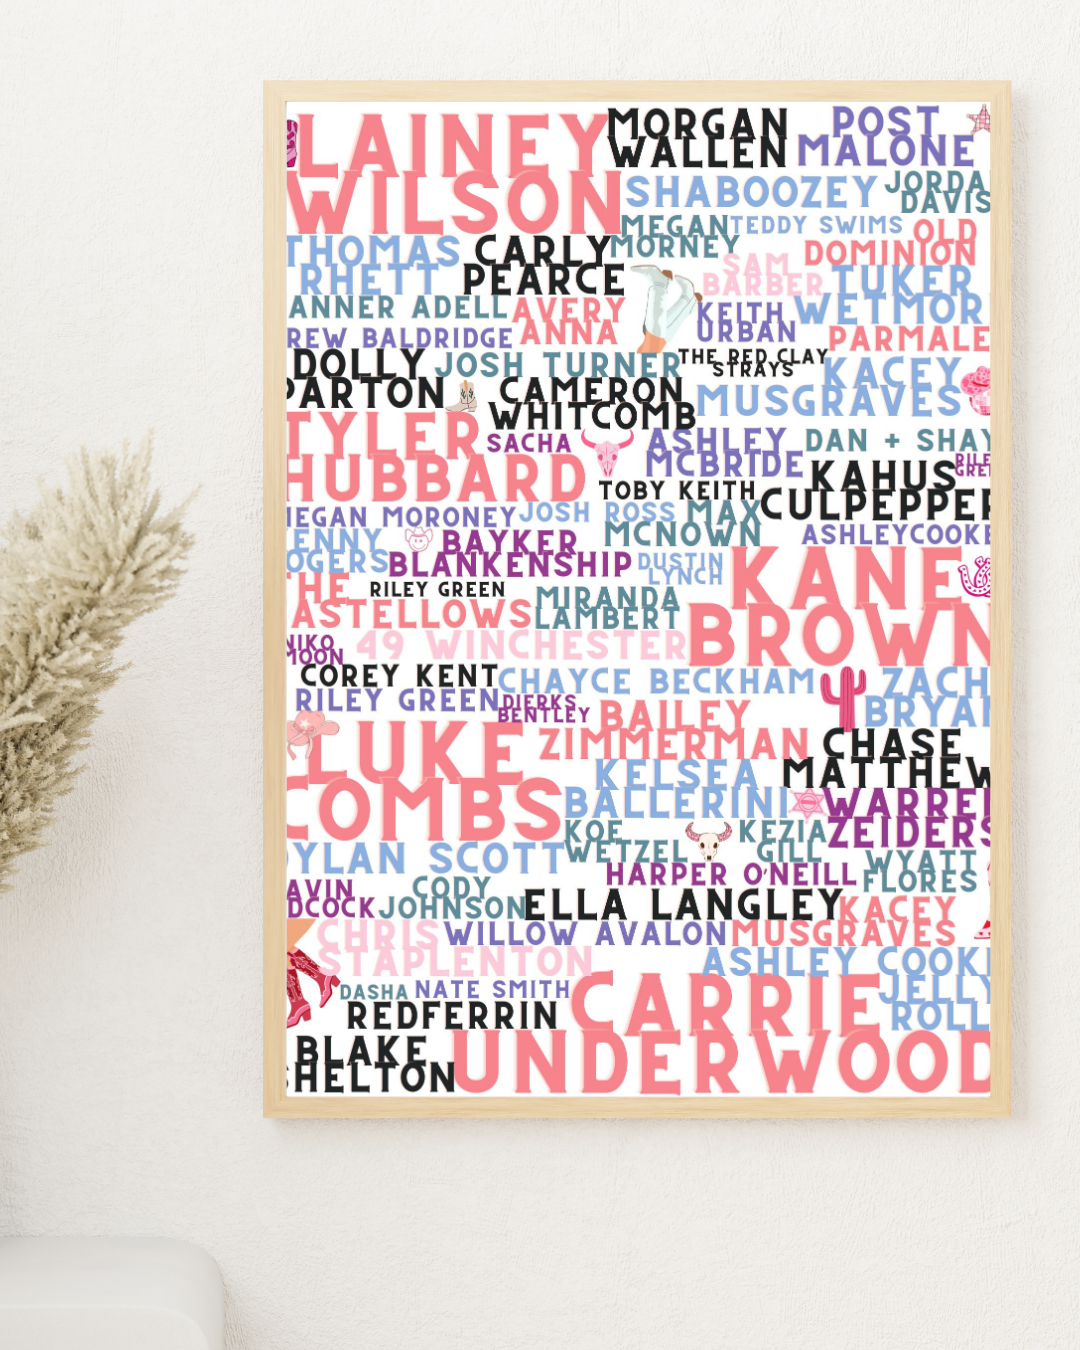 LAINEY
WILSON
MORGAN
WALLEN
POST
MALONE
SHABOOZEY
JORDA
DAVIS
MEGAN
MORNEY
TEDDY SWIMS
OLD
DOMINION
THOMAS
RHETT
CARLY
PEARCE
SAM
BARBER
TUKER
WETMOR
ANNER ADELL
AVERY
ANNA
KEITH
URBAN
PARMALE
REW BALDRIDGE
DOLLY
PARTON
JOSH TURNER
THE RED CLAY
STRAYS
KACEY
MUSGRAVES
CAMERON
WHITCOMB
TYLER
HUBBARD
SACHA
ASHLEY
MCBRIDE
DAN + SHAY
KAHUS
CULPEPPER
RILE
GREE
TOBY KEITH
MEGAN MORONEY
JOSH ROSS
MAX
MCNOWN
ASHLEYCOOKE
ENNY
OGERS
BAYKER
BLANKENSHIP
DUSTIN
LYNCH
KANE
BROWN
THE
ASTELLOWS
RILEY GREEN
MIRANDA
LAMBERT
NIKO
MOON
49 WINCHESTER
COREY KENT
CHAYCE BECKHAM
ZACH
BRYAN
RILEY GREEN
DIERKS
BENTLEY
BAILEY
ZIMMERMAN
LUKE
COMBS
CHASE
MATTHEW
KELSEA
BALLERINI
WARREN
ZEIDERS
KOE
WETZEL
KEZIA
GILL
DYLAN SCOTT
HARPER O'NEILL
WYATT
FLORES
AVIN
DCOCK
CODY
JOHNSON
ELLA LANGLEY
KACEY
MUSGRAVES
CHRIS
STAPLENTON
WILLOW AVALON
ASHLEY COOKE
DASHA
NATE SMITH
CARRIE
UNDERWOOD
JELLY
ROLL
REDFERRIN
BLAKE
SHELTON